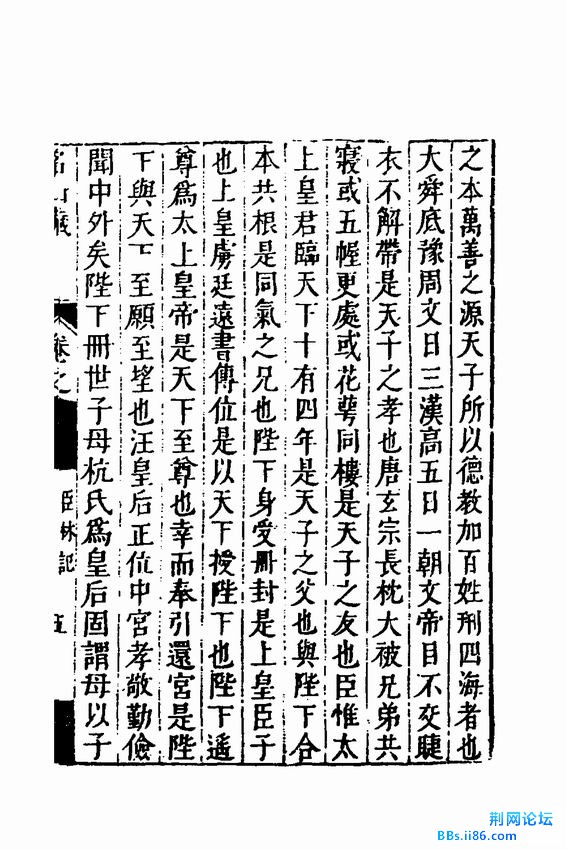 之本萬善之源天子所以德教加百姓刑四海者也
大舜底豫周文日三漢高五日一朝文帝目不交睫
衣不解帶是天子之孝也唐玄宗長枕大被兄弟共
寢或五幄更處或花萼同樓是天子之友也臣惟太
上皇君臨天下十有四年是天子之父也與陛下合
本共根是同氣之兄也陛下身受冊封是上皇臣子
也上皇虜廷遠書傳位是以天下授陛下也陛下遥
尊爲太上皇帝是天下至尊也幸而奉引還宮是陛
下與天下至願至望也汪皇后正位中宮孝敬勤儉
聞中外矣陛下冊世子母杭氏爲皇后固謂母以子
名山藏 卷之 臣林記 五
荆网论坛
BBs.ii86.com